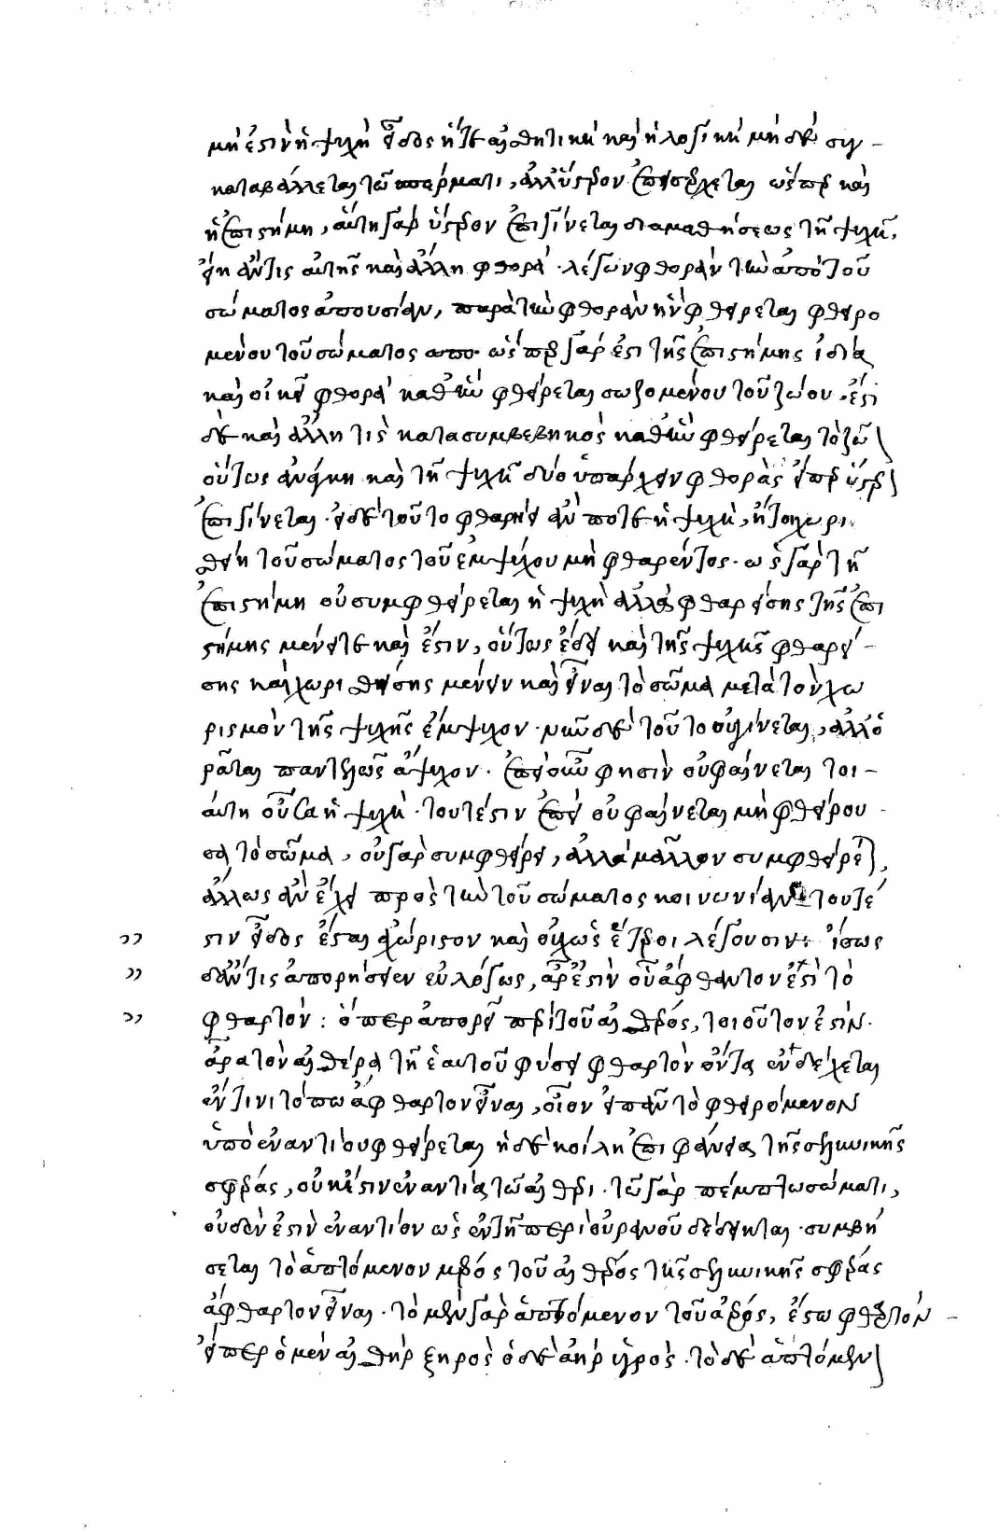 μή ἐστιν ἡ ψυχὴ εἶδος ἥτε αἰσθητικὴ καὶ ἡ λογικὴ μὴ δὲ συγ-
καταβάλλεται τῷ σπέρματι, ἀλλ' ὕστερον ἐπεισέρχεται ὥσπερ καὶ
ἡ ἐπιστήμη, αὕτη γὰρ ὕστερον ἐπιγίνεται διαμαθήσεως τῇ ψυχῇ,
εἴη ἄν τις αὐτῆς καὶ ἄλλη φθορά· λέγων φθορὰν τὴν ἀπὸ τοῦ
σώματος ἀπουσίαν, παρὰ τὴν φθορὰν ἣν φθείρεται φθειρο
μένου τοῦ σώματος· ὥσπερ γάρ ἐστι τῆς ἐπιστήμης ἰδία
καὶ οἰκεία φθορὰ καθ' ἣν φθείρεται σωζομένου τοῦ ζώου· ἔστι
δὲ καὶ ἄλλη τις κατασυμβεβηκὸς καθ' ἣν φθείρεται τὸ ζῶον
οὕτως ἀνάγκη καὶ τῇ ψυχῇ δύο ὑπάρχειν φθορὰς εἴπερ ὕστερον
ἐπιγίνεται· εἰ δὲ τοῦτο φθαρείη ἄν ποτε ἡ ψυχὴ, ἤτοι χωρι
σθείη τοῦ σώματος τοῦ ἐμψύχου μὴ φθαρέντος· ὡς γὰρ τῇ
ἐπιστήμῃ οὐ συμφθείρεται ἡ ψυχὴ ἀλλὰ φθαρείσης τῆς ἐπι
στήμης μένει τε καὶ ἔστιν, οὕτως ἔδει καὶ τῆς ψυχῆς φθαρεί-
σης καὶ χωρισθείσης μένειν καὶ εἶναι τὸ σῶμα μετὰ τὸν χω
ρισμὸν τῆς ψυχῆς ἔμψυχον· νῦν δὲ τοῦτο οὐ γίνεται, ἀλλ' ὁ
ρᾶται παντελῶς ἄψυχον· ἐπεὶ οὖν φησὶν οὐ φαίνεται τοι-
αύτη οὖσα ἡ ψυχὴ· τουτέστιν ἐπεὶ οὐ φαίνεται μὴ φθείρου
σα τὸ σῶμα, οὐ γὰρ συμφθείρει, ἀλλὰ μᾶλλον συμφθείρεται,
ἄλλως ἂν ἔχει πρὸς τὴν τοῦ σώματος κοινωνίαν τουτέ
στιν εἶδος ἔσται ἀχώριστον καὶ οὐχ ὡς ἕτεροι λέγουσιν: ἴσως
δ' ἄν τις ἀπορήσειεν εὐλόγως, ἆρ' ἐστὶν οὗ ἄφθαρτον ἔσται τὸ
φθαρτόν: ὅπερ ἀπορεῖ περὶ τοῦ αἰθέρος, τοιοῦτον ἐστίν·
ἆρα τὸν αἰθέρα τῇ ἑαυτοῦ φύσει φθαρτὸν ὄντα ἐνδέχεται
ἔν τινι τόπῳ ἄφθαρτον εἶναι, οἷον εἰ πᾶν τὸ φθειρόμενον
ὑπὸ ἐναντίου φθείρεται ἡ δὲ κοίλη ἐπιφάνεια τῆς σεληνιακῆς
σφαίρας, οὐκ ἔστιν ἐναντία τῷ αἰθέρι· τῷ γὰρ πέμπτῳ σώματι,
οὐδὲν ἐστὶν ἐναντίον ὡς ἐν τῇ περὶ οὐρανοῦ δέδεικται· συμβή
σεται τὸ ἁπτόμενον μέρος τοῦ αἰθέρος τῆς σεληνιακῆς σφαίρας
ἄφθαρτον εἶναι· τὸ μὲν γὰρ ἁπτόμενον τοῦ ἀέρος, ἔστω φθαρτὸν
εἴπερ ὁ μὲν αἰθὴρ ξηρὸς ὁ δὲ ἀὴρ ὑγρός· τὸ δὲ ἁπτόμενον